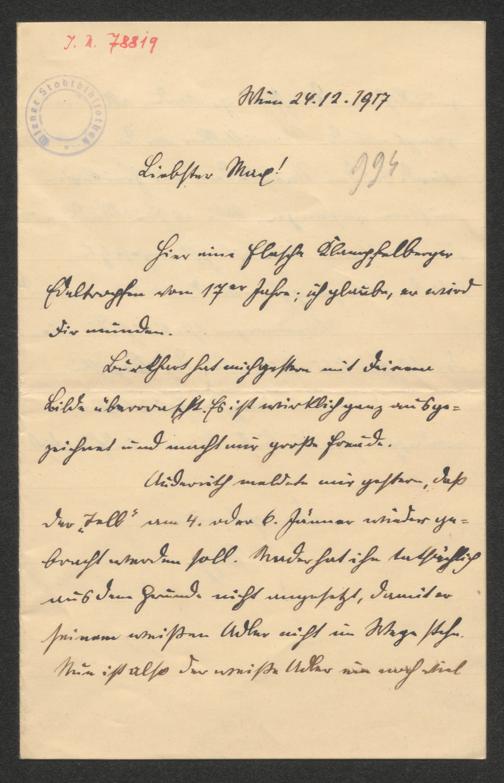 J. N. 78819
Wiener Stadtbibliothek
Wien 24.12.1917
Liebster Max!
994
Hier eine Flasche Klampfelberger
Edeltropfen vom 17er Jahre; ich glaube, er wird
Dir munden.
Burkhart hat mich gestern mit Deinem
Bilde überrascht. Es ist wirklich ganz ausge=
zeichnet und macht mir große Freude.
Auderieth meldete mir gestern, daß
der „Tell“ am 4. oder 6. Jänner wieder ge=
bracht werden soll. Mader hat ihn tatsächlich
aus dem Grunde nicht angesetzt, damit er
seinem weißen Adler nicht im Wege stehe.
Nun ist also der weiße Adler um noch viel